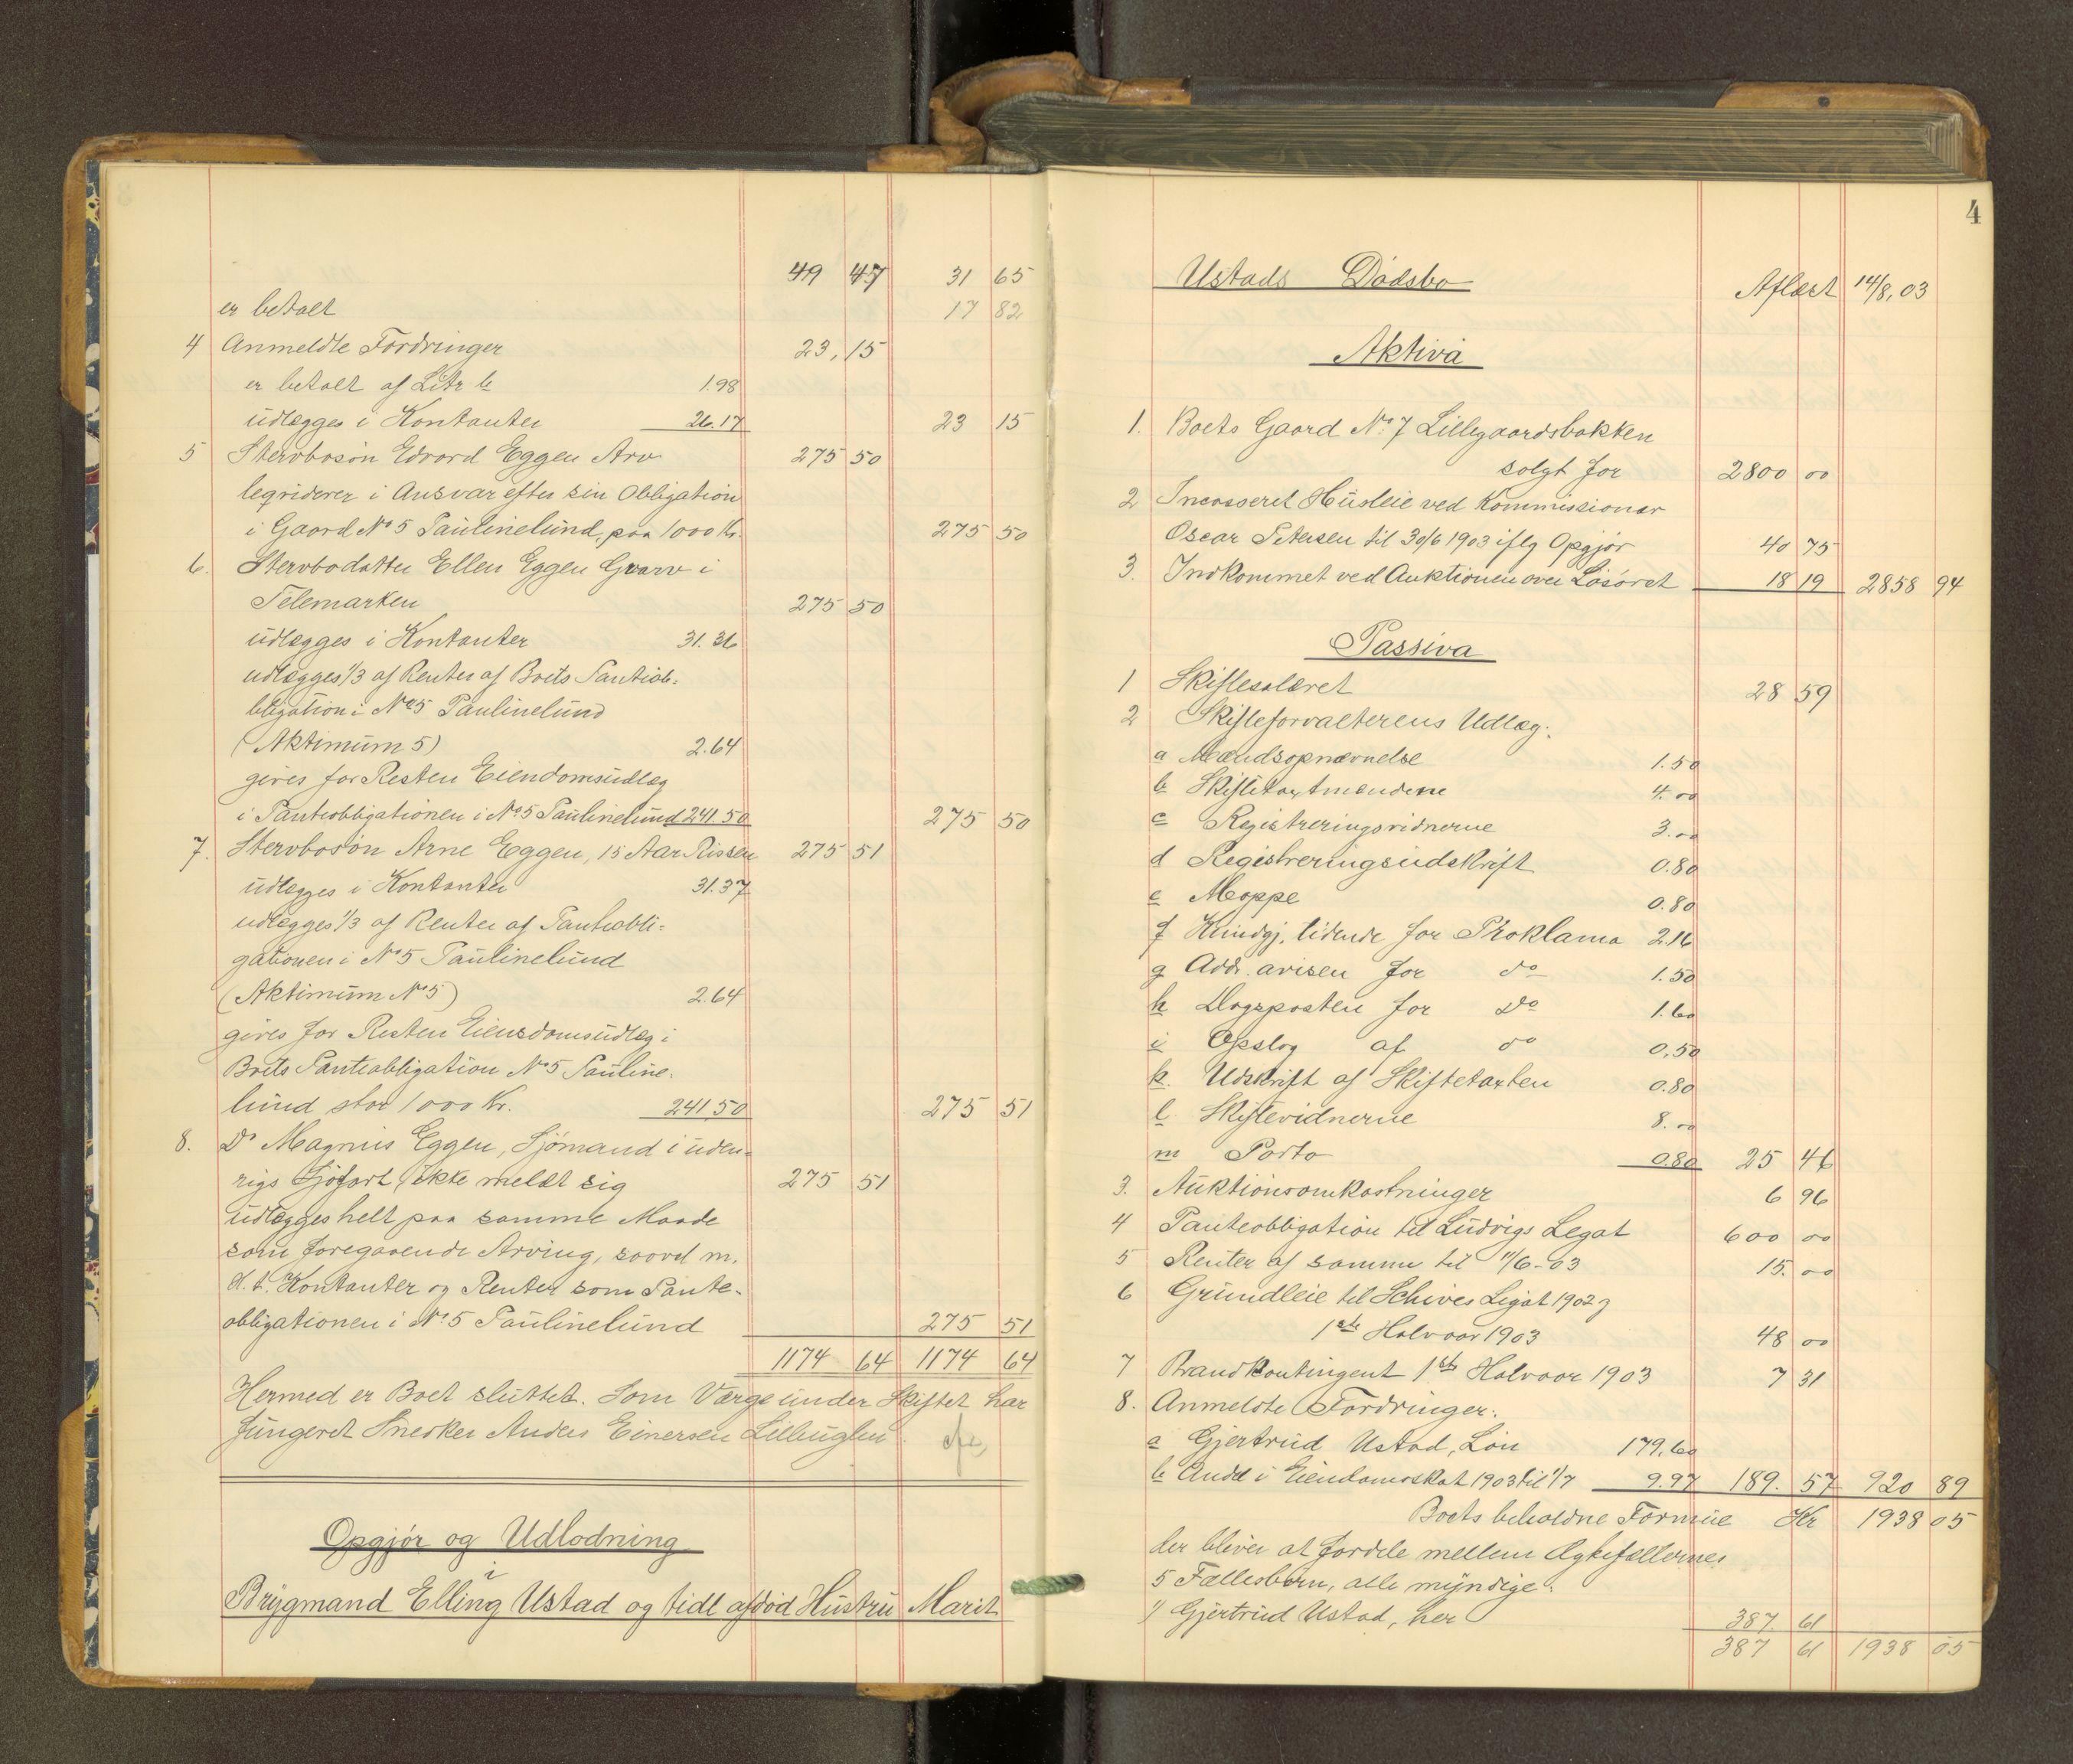 49 47 31 65
er betalt 17 82
4 Anmeldte Fordringer 23,15
er betalt af Litr b 1.98
udlægges i Kontanter 21.17 23 15
5 Stervbosön Edvard Eggen Arv 275 50
leqviderer i Ansvar efter sin Obligation
i Gaard No 5 Paulinelund, paa 1000 Kr. 275 50
6. Stervbodatter Ellen Eggen Gvarv i
Telemarken 275 50
udlægges i Kontanter 31.36
udlægges 1/3 af Renter af Boets Pantiob-
bligation i No 5 Paulinelund
(Aktimum 5) 2.64
gives for Resten Eiendomsudlæg
i Panteobligationen i No 5 Paulinelund 241.50 275 50
7. Stervbosön Arne Eggen, 15 Aar Rissen 275 51
udlægges i Kontanter 31.37
udlægges 1/3 af Renter af Panteobli-
gationen i No 5 Paulinelund
(Aktimum No 5) 2.64
gives for Resten Eiendomsudlæg i
Boets Panteobligation No 5 Pauline-
lund stor 1000 Kr. 241,50 275 51
8. Do Magnus Eggen, Sjömand i uden-
rigs Sjöfart, ikke meldt sig 275 51
udlægges helt paa samme Maade
som foregaaende Arving, saavel m.
H. t. Kontanter og Renter som Pante-
obligationen i No 5 Paulinelund 275 51
1174 64 1174 64
Hermed er Boet sluttet. Som Værge under Skiftet har
fungeret Snedker Anders Einersen
Opgjör og Udlodning
i
Brygmand Elling Ustad og tidl afdöd Hustru Marit
4
Ustads Dödsbo Aflæst 14/8, 03
Aktiva
1. Boets Gaard No 7 Lillegaardsbakken
solgt for 2800 00
2 Incasseret Husleie ved Kommissionær
Oscar Petersen til 30/6 1903 iflg Opgjör 40 75
3. Indkommet ved Auktionen over Lösöret 18 19 2858 94
Passiva
1 Skiftesalæret 28 59
2 Skifteforvalterens Udlæg:
a Mændsopnævnelse 1.50
b Skiftetaxtmændene 4.00
c Registreringsvidnerne 3.00
d Registreringsudskrift 0.80
e Mappe 0.80
f Kundgj. tidende for Proklama 2.16
g Addr. avisen for do 1.50
h Dagsposten for Do 1.60
i Opslag af do 0,50
k. Udskrift af Skiftetaxten 0.80
l. Skiftevidnerne 8.00
m Porto 0.80 25 46
3. Auktionsomkostninger 6 96
4 Panteobligation til Ludvigs Legat 600 00
5 Renter af samme til 11/6-03 15.00
6 Grundleie til Schives Legat 1902 og
1ste Halvaar 1903 48 00
7 Brandkontingent 1ste Halvaar 1903 7 31
8. Anmeldte Fordringer:
a Gjertrud Ustad, Lön 179,60
b Andel i Eiendomsskat 1903 til 1/7 9.97 189.57 920 89
Boets beholdne Formue Kr 1938 05
der bliver at fordele mellem Ægtefællernes
5 Fællesbørn, alle myndige:
1/ Gjertrud Ustad, her 387 61
387 61 1938 05